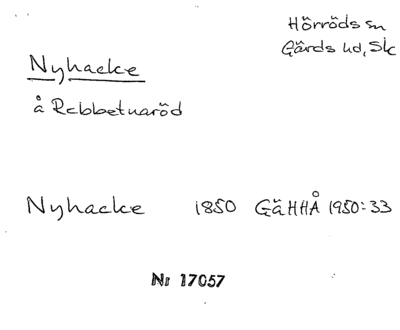 Hörröds sn
Gärds hd, Sk
Nyhacke
å Rebbetuaröd
Nyhacke 1850 GäHHÅ 1950:33
Nr 17057